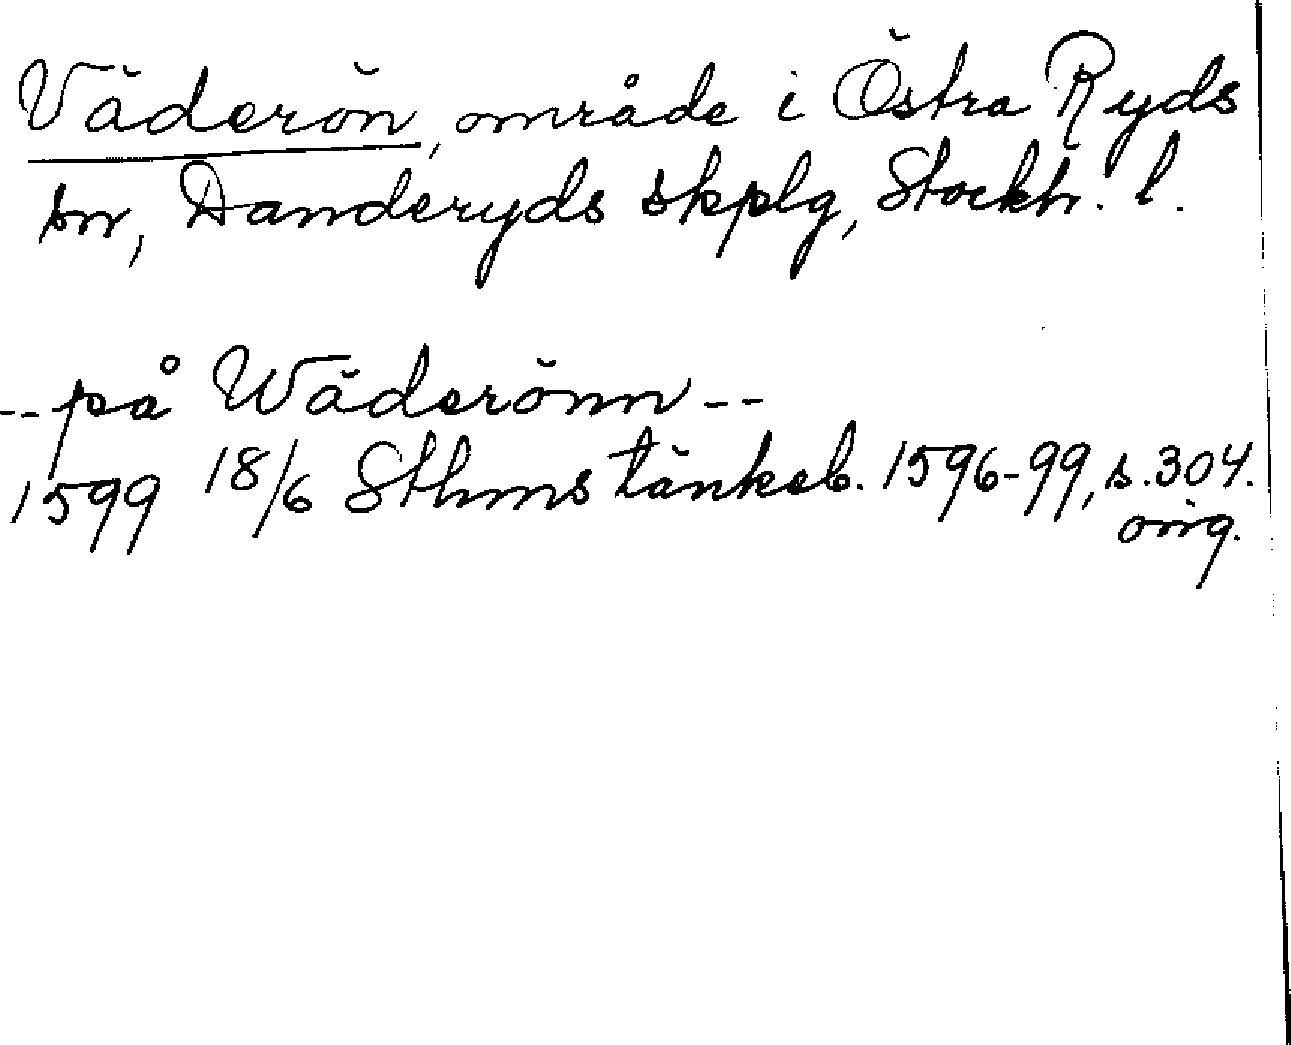 Väderön, område i Östra Ryds
sn, Danderyds skplg, Stockh. l.
-- på Wäderönn --
1599 18/6 Sthms tänkeb. 1596-99, s. 304.
orig.